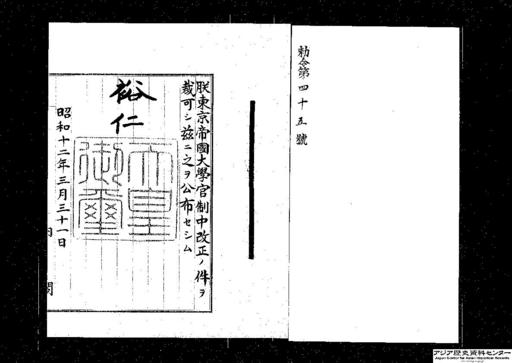 勅令第四十五號
朕東京帝國大學官制中改正ノ件ヲ
裁可シ茲ニ之ヲ公布セシム
裕仁
天皇御璽
昭和十二年三月三十一日
内閣
アジア歴史資料センター
Japan Center for Asian Historical Records